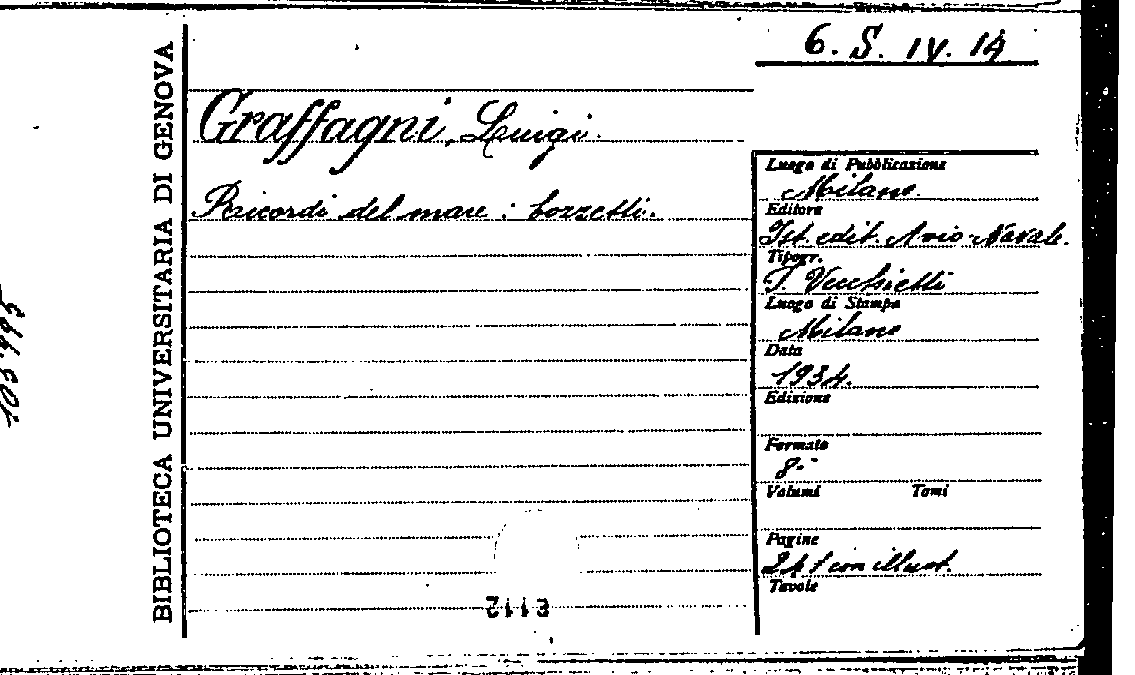 6. S. IV. 14
BIBLIOTECA UNIVERSITARIA DI GENOVA
Graffagni, Luigi.
Ricordi del mare: bozzetti.
Luogo di Pubblicazione
Milano.
Editore
Ist. edit. Avio-Navale.
Tipogr.
T. Vecchietti
Luogo di Stampa
Milano
Data
1934.
Edizione
Formato
8°
Volumi Tomi
Pagine
con illust.
Tavole